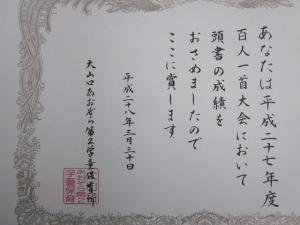 あなたは平成二十七年度
百人一首大会において
頭書の成績を
おさめましたので
ここに賞します
平成二十八年三月三十日
大山口あおぞら第2学童保育所